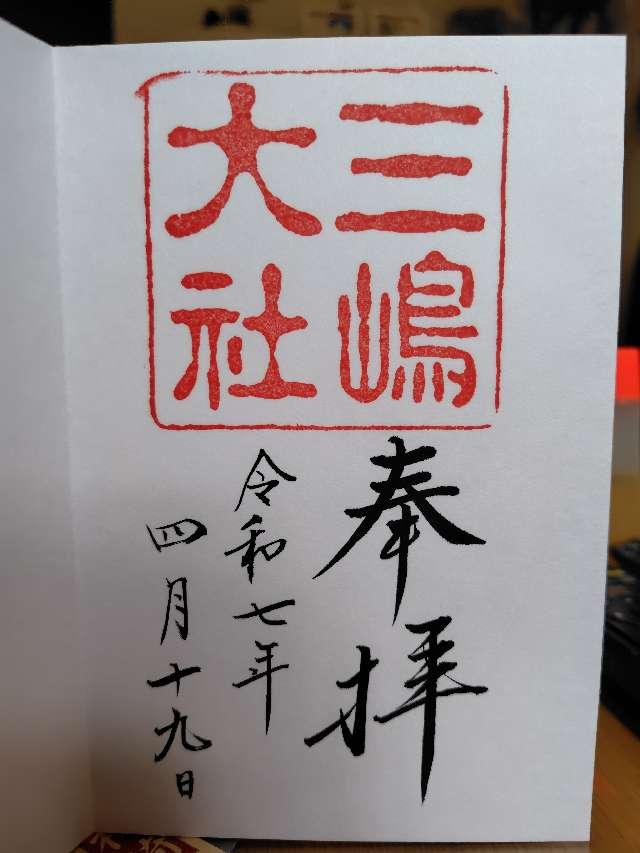 三嶋
大社
奉拝
令和七年
四月十九日